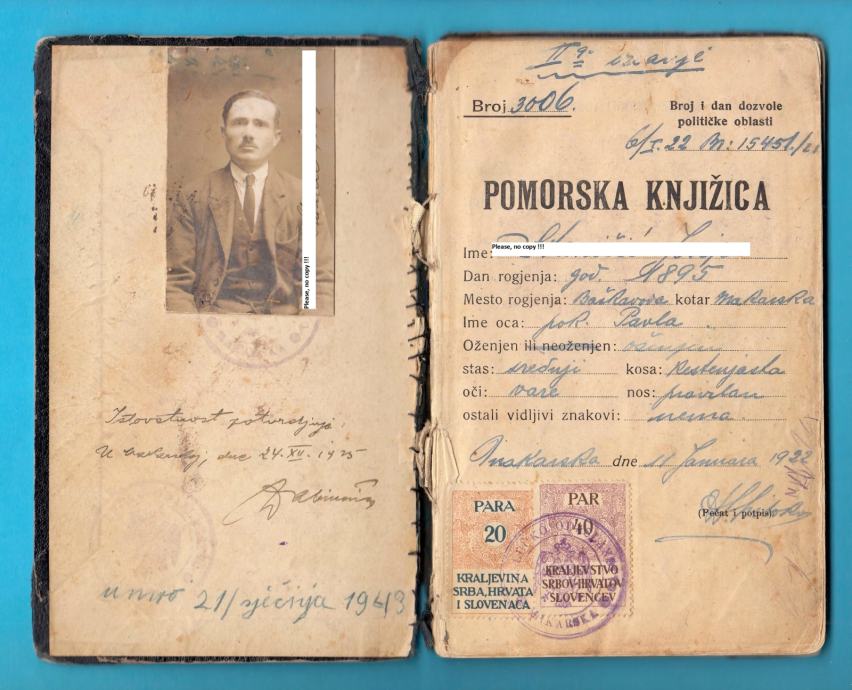 Please, no copy !!!
Istovetnost potvrdjuje
U dne 24. XII. 1925
umro 21/ sječnja 1943
II izdanje
Broj 3006.
Broj i dan dozvole
političke oblasti
6/I. 22 Br: 15451/21
POMORSKA KNJIŽICA
Please, no copy !!!
Ime:
Dan rogjenja: god. 1895
Mesto rogjenja: Baškavoda kotar Makarska
Ime oca: pok. Pavla
Oženjen ili neoženjen: oženjen
stas: srednji kosa: kestenjasta
oči: nos: pravilan
ostali vidljivi znakovi: nema.
Makarska dne 11 Januara 1922
(Pečat i potpis)
PARA
20
KRALJEVINA
SRBA, HRVATA
I SLOVENACA
PAR
40
KRALJEVSTVO
SRBOV-HRVATOV
SLOVENCEV
MAKARSKA